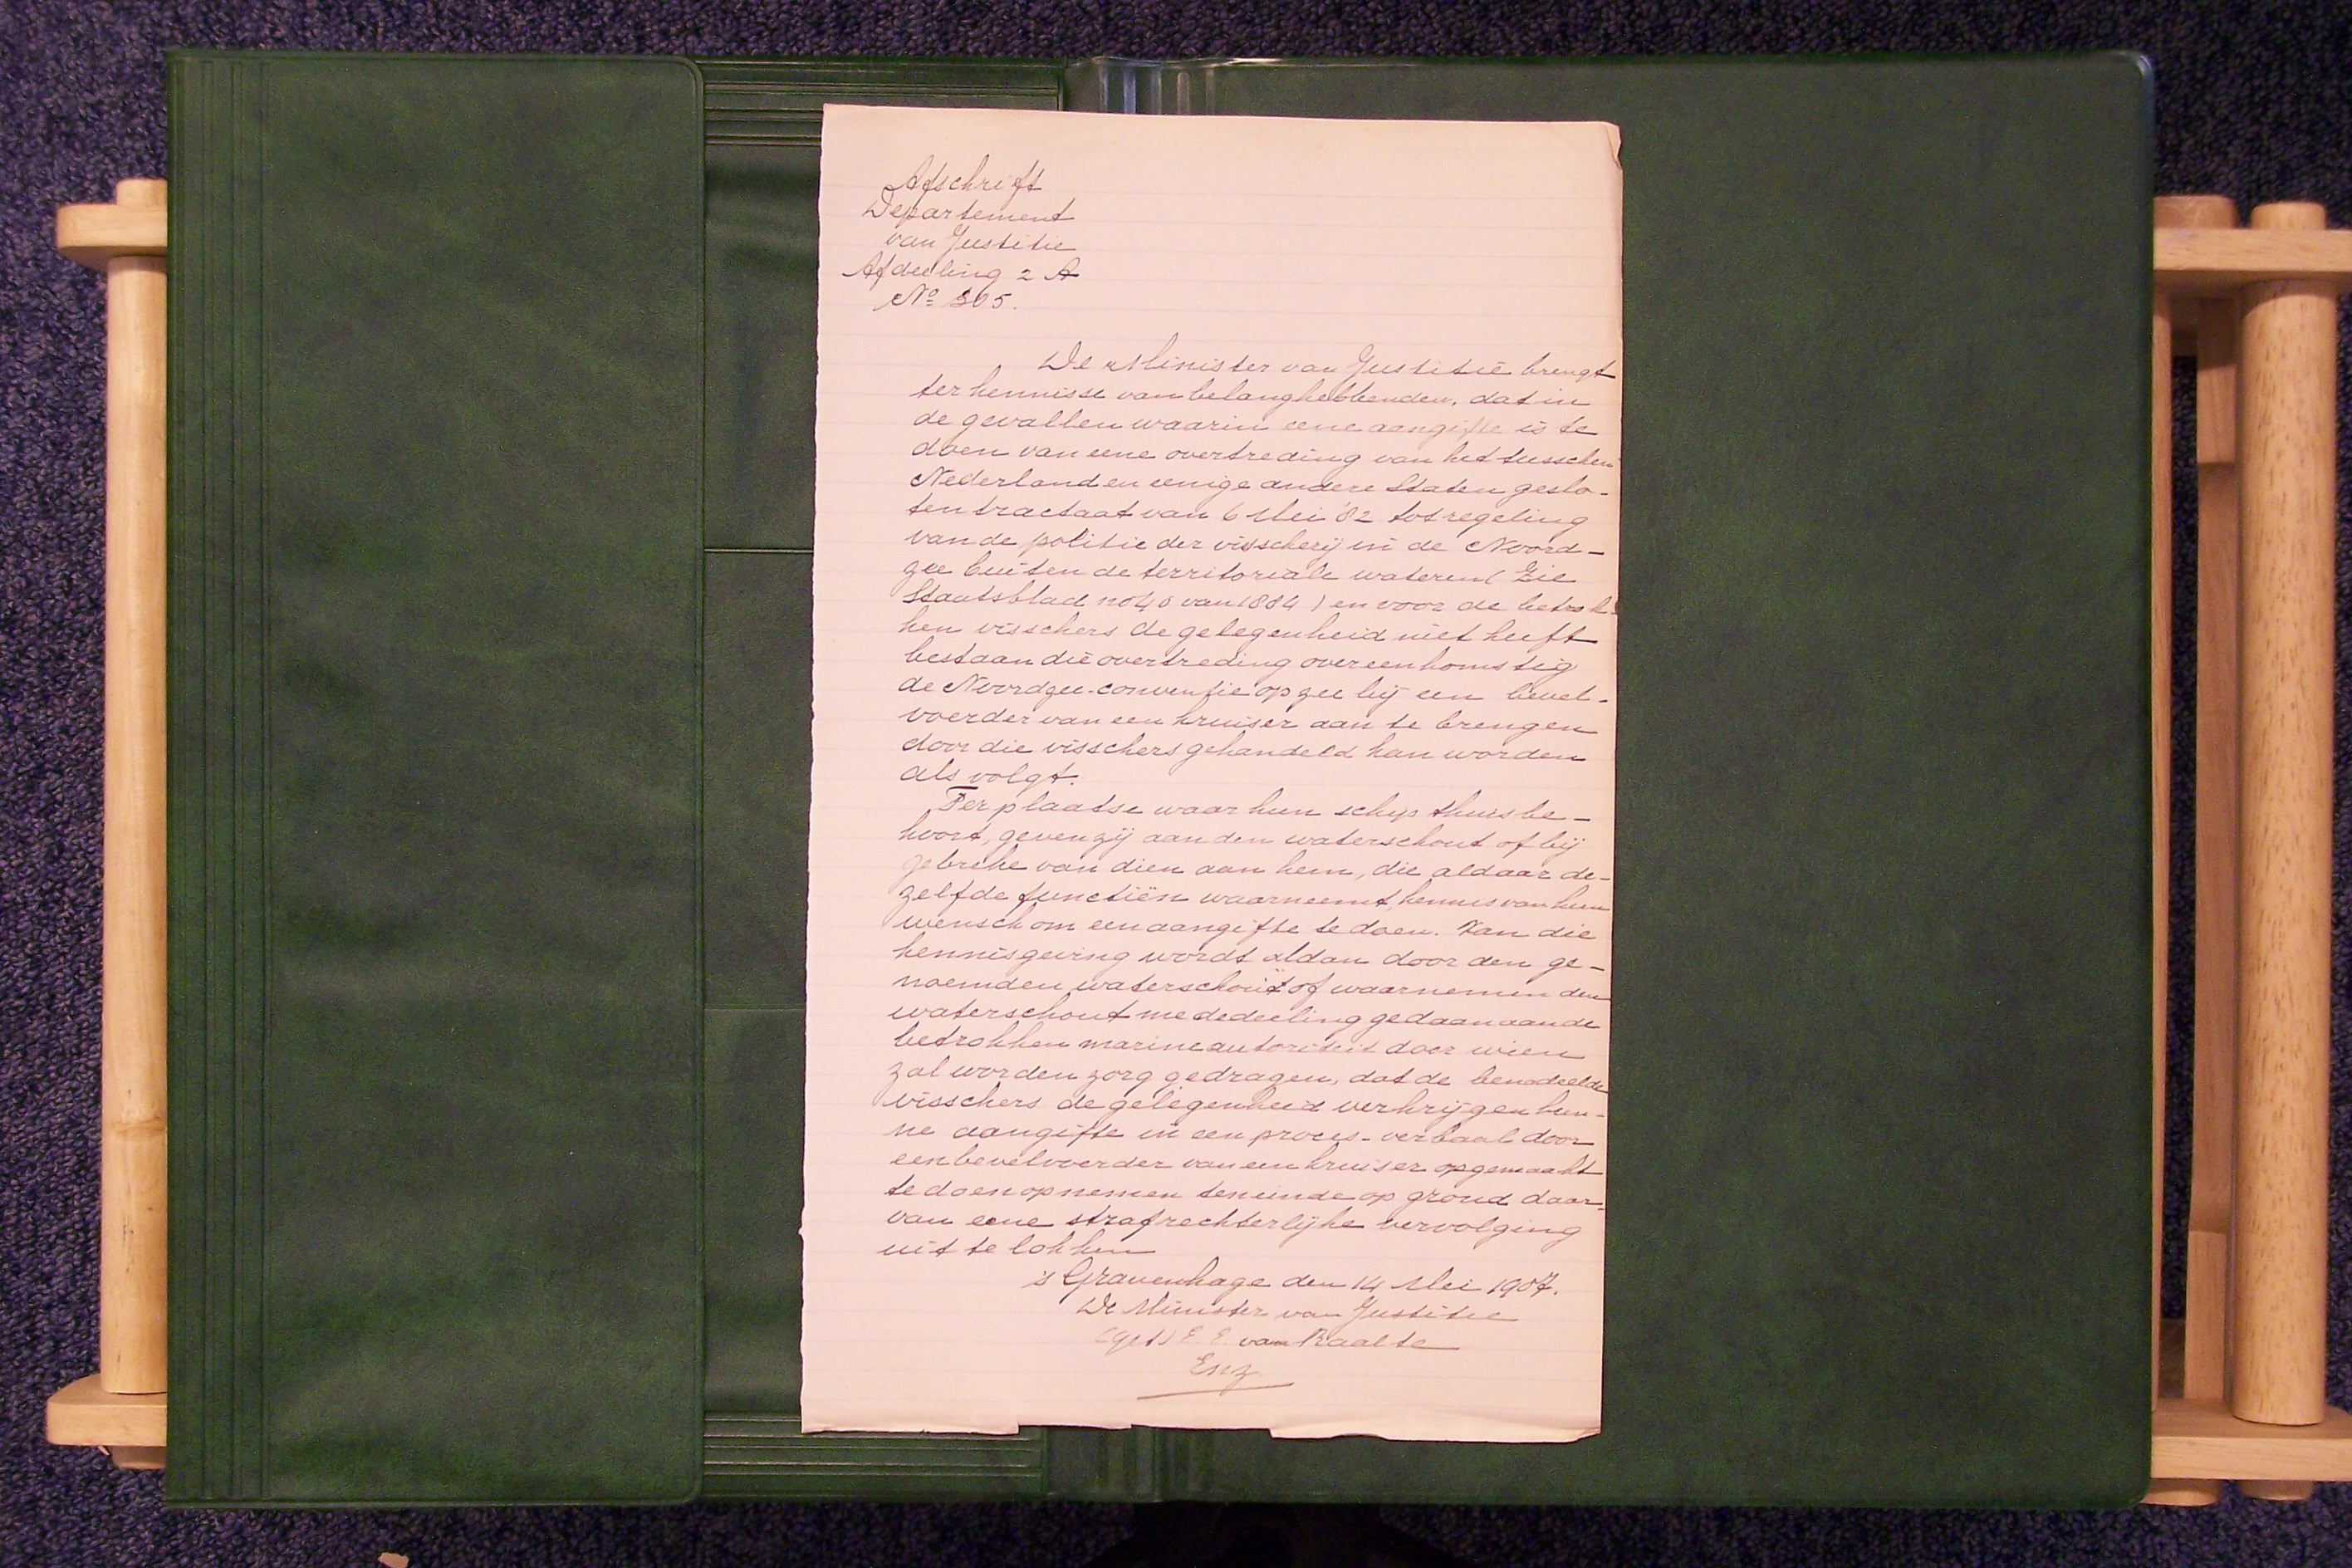 Afschrift
Departement
van Justitie
Afdeeling 2 A
No 305.
De Minister van Justitie brengt
ter kennisse van belanghebbenden, dat in
de gevallen waarin eene aangifte is te
doen van eene overtreding van het tusschen
Nederland en eenige andere Staten geslo-
ten tractaat van 6 Mei '82 tot regeling
van de politie der visscherij in de Noord-
zee buiten de territoriale wateren (Zie
Staatsblad no 40 van 1884) en voor de betrok-
ken visschers de gelegenheid niet heeft
bestaan die overtreding overeenkomstig
de Noordzee-conventie op zee bij een bevel-
voerder van een kruiser aan te brengen
door die visschers gehandeld kan worden
als volgt.
Ter plaatse waar hun schip thuisbe-
hoort, geven zij aan den waterschout of bij
gebreke van dien aan hem, die aldaar de-
zelfde functiën waarneemt, kennis van hun
wensch om een aangifte te doen. Van die
kennisgeving wordt aldan door den ge-
noemden waterschout of waarnemenden
waterschout mededeeling gedaan aan de
betrokken marine autoriteit door wien
zal worden zorg gedragen, dat de benadeelde
visschers de gelegenheid verkrijgen hun-
ne aangifte in een proces-verbaal door
een bevelvoerder van een kruiser opgemaakt
te doen opnemen teneinde op grond daar-
van eene strafrechterlijke vervolging
uit te lokken
's Gravenhage den 14 Mei 1907.
De Minister van Justitie
(get) E. E. van Raalte
Enz